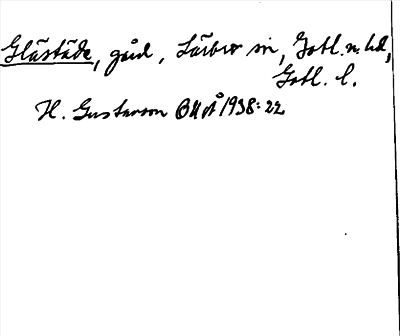 Glästäde, gård, Lärbro sn, Gotl. n. hd,
Gotl. l.
H. Gustavson BUÅ 1938: 22